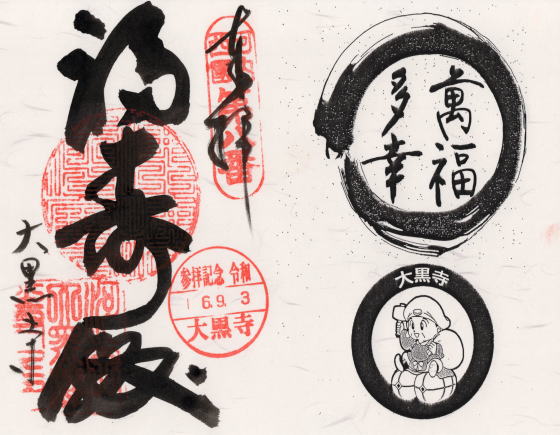 奉拝
福寿殿
大黒寺
参拝記念 令和
6.9.3
大黒寺
萬福
多幸
大黒寺